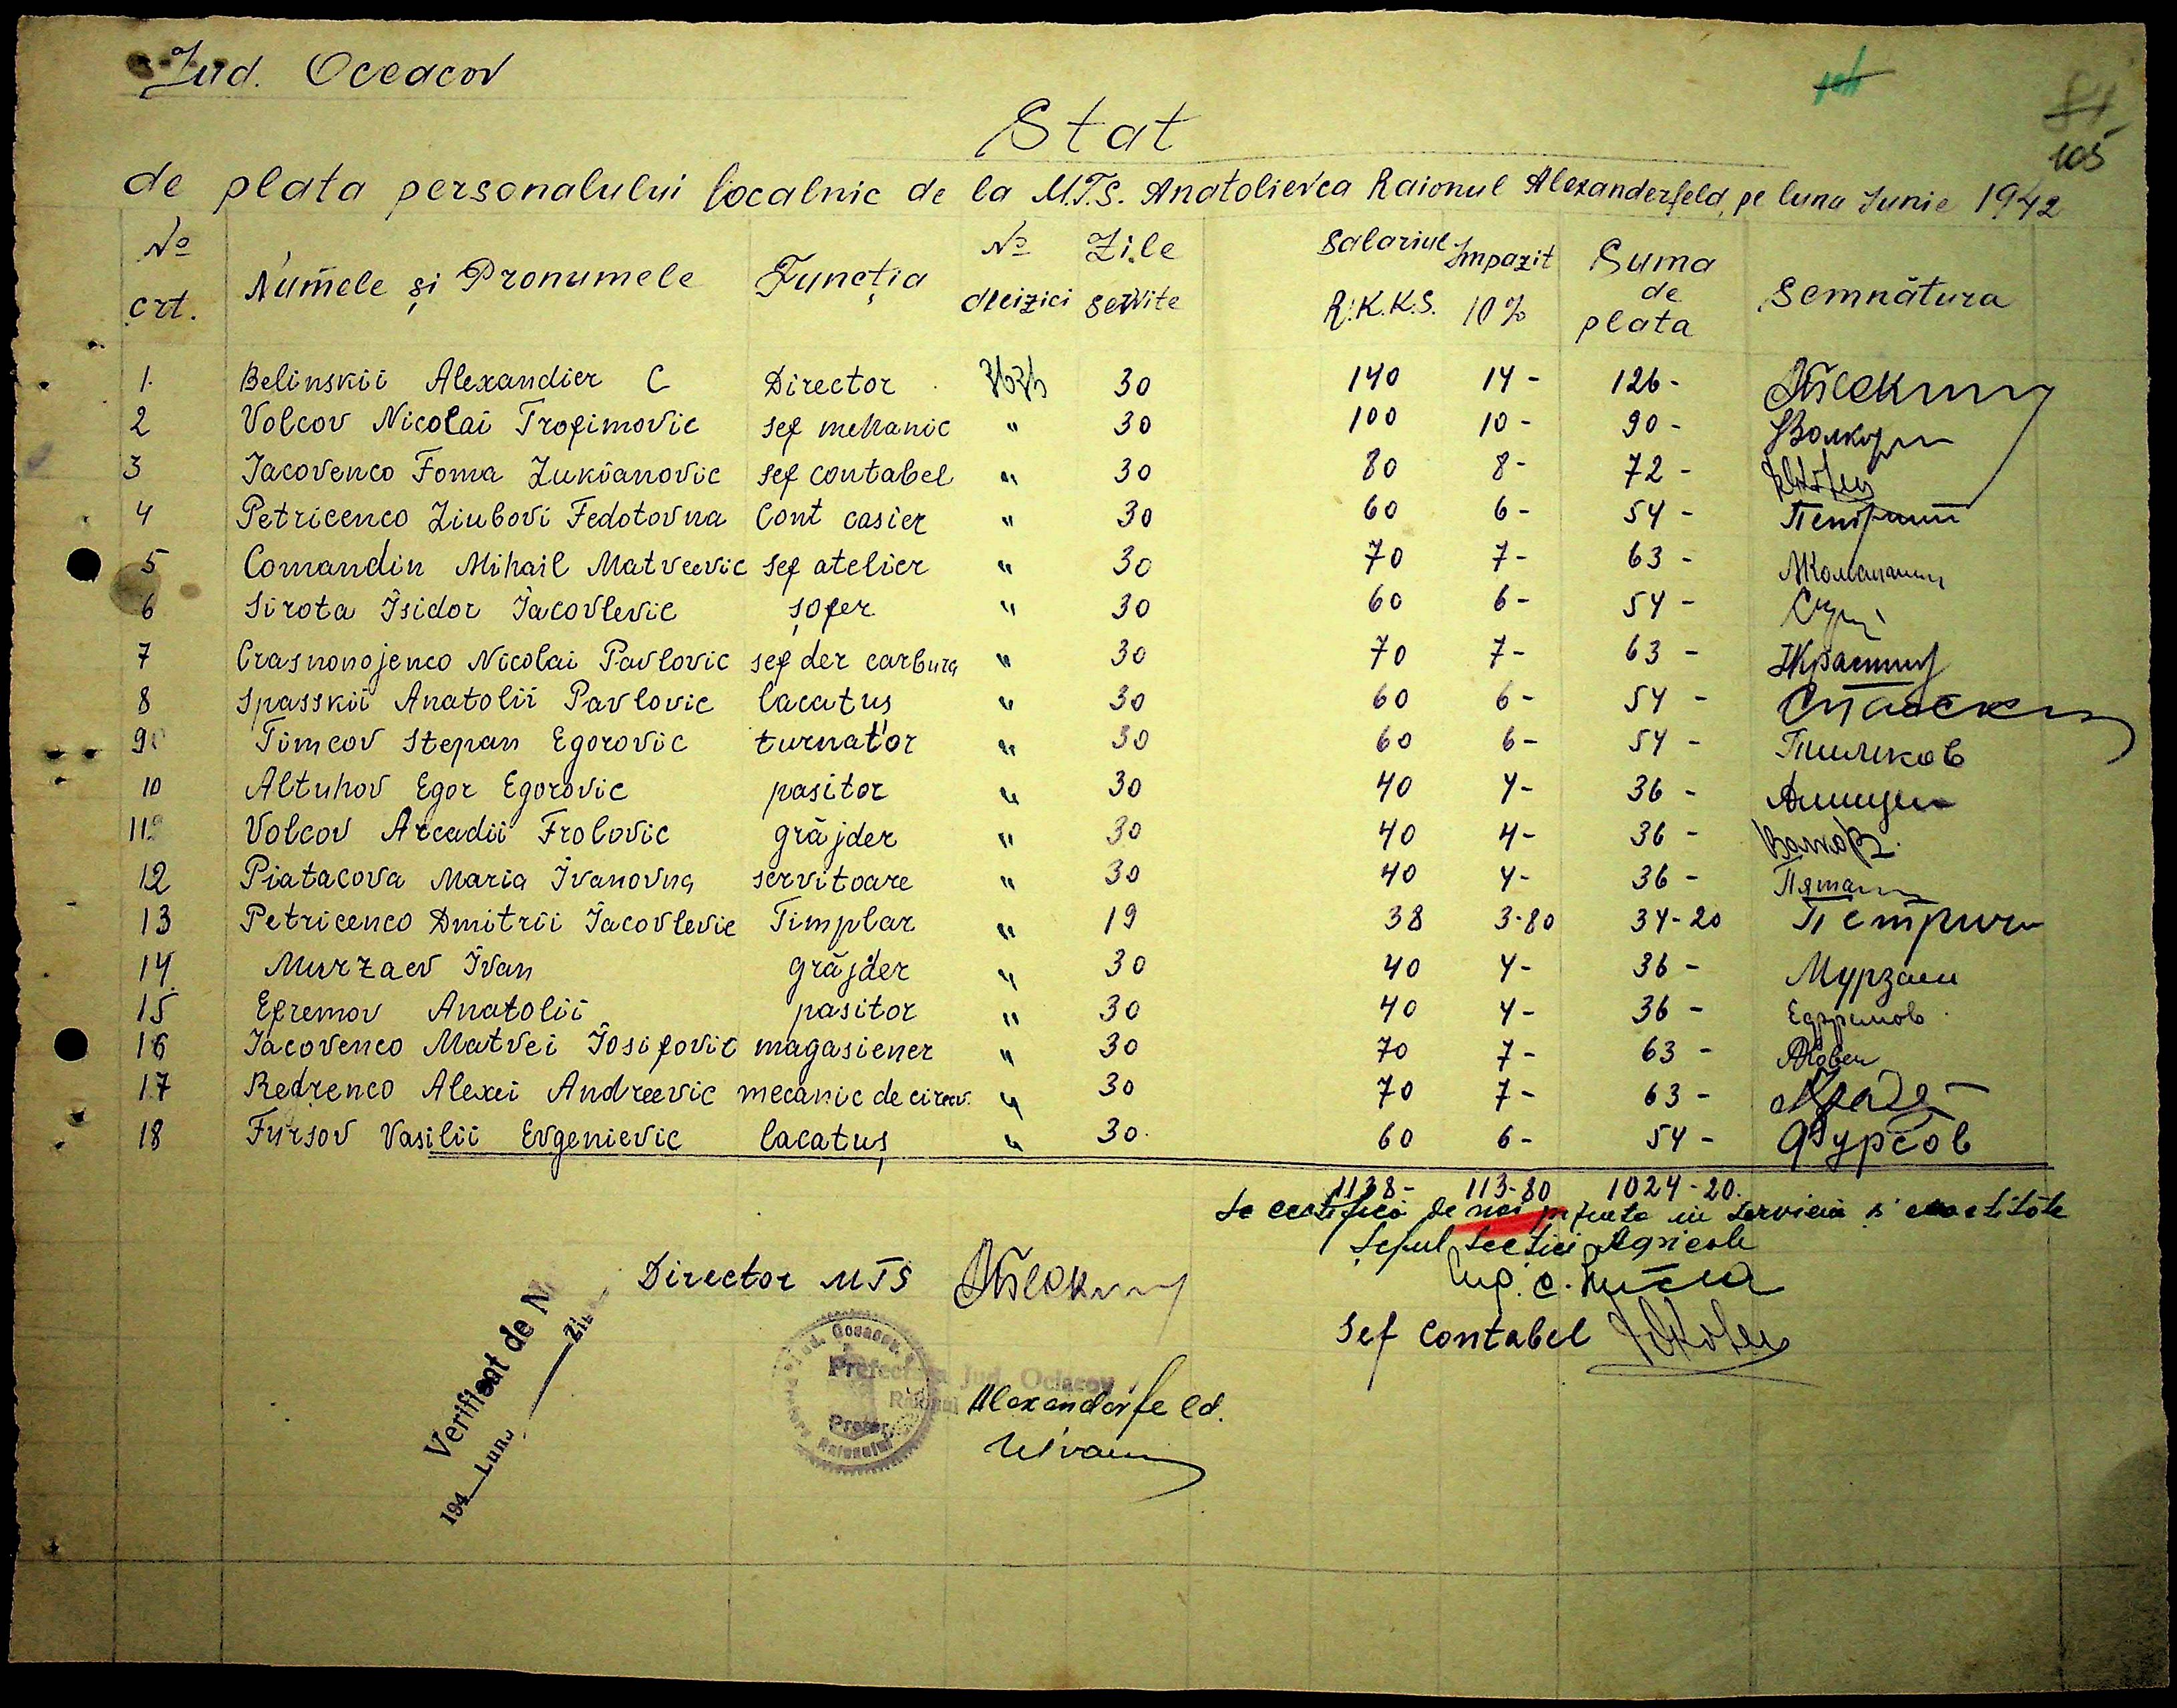 Jud. Oceacov
105
Stat
de plata personalului localnic de la M.T.S. Anatolievca Raionul Alexanderfeld, pe luna Iunie 1942
No crt. Numele și Pronumele Funcția No dleizici Zile servite Salariul R.K.K.S. Impozit 10% Suma de plata Semnătura
1. Belinskii Alexandier C Director 30 140 14 - 126 -
2 Volcov Nicolai Trofimovic sef mehanic " 30 100 10 - 90 - Волков
3 Iacovenco Foma Lukianovic sef contabel " 30 80 8 - 72 -
4 Petricenco Liubovi Fedotovna Cont casier " 30 60 6 - 54 -
5 Comandin Mihail Matveevic sef atelier " 30 70 7 - 63 -
6 Sirota Isidor Iacovlevic șofer " 30 60 6 - 54 -
7 Crasnonojenco Nicolai Pavlovic sef der carbura " 30 70 7 - 63 -
8 Spasskii Anatolii Pavlovic lacatuș " 30 60 6 - 54 - Спасски
9 Timcov Stepan Egorovic turnator " 30 60 6 - 54 - Тимков
10 Altuhov Egor Egorovic pasitor " 30 40 4 - 36 -
11 Volcov Arcadii Frolovic grăjder " 30 40 4 - 36 - Волков
12 Piatacova Maria Ivanovna servitoare " 30 40 4 - 36 -
13 Petricenco Dmitrii Iacovlevic Timplar " 19 38 3-80 34-20 Петрич
14. Murzaev Ivan grăjder " 30 40 4 - 36 - Мурзаев
15 Efremov Anatolii pasitor " 30 40 4 - 36 - Ефремов
16 Iacovenco Matvei Iosifovic magasiener " 30 70 7 - 63 -
17 Redrenco Alexei Andreevic mecanic de cireav. " 30 70 7 - 63 -
18 Fursov Vasilii Evgenievic lacatuș " 30. 60 6 - 54 - Фурсов
1138 - 113-80 1024-20.
Se certifică de noi in serviciu și
Șeful Secției Agricole
Ing. C.
Director MTS
Sef Contabel
Verificat de N
194 Luna Zi
Prefect Jud. Ociacov
Raionul Alexandorfeld.
Pretor